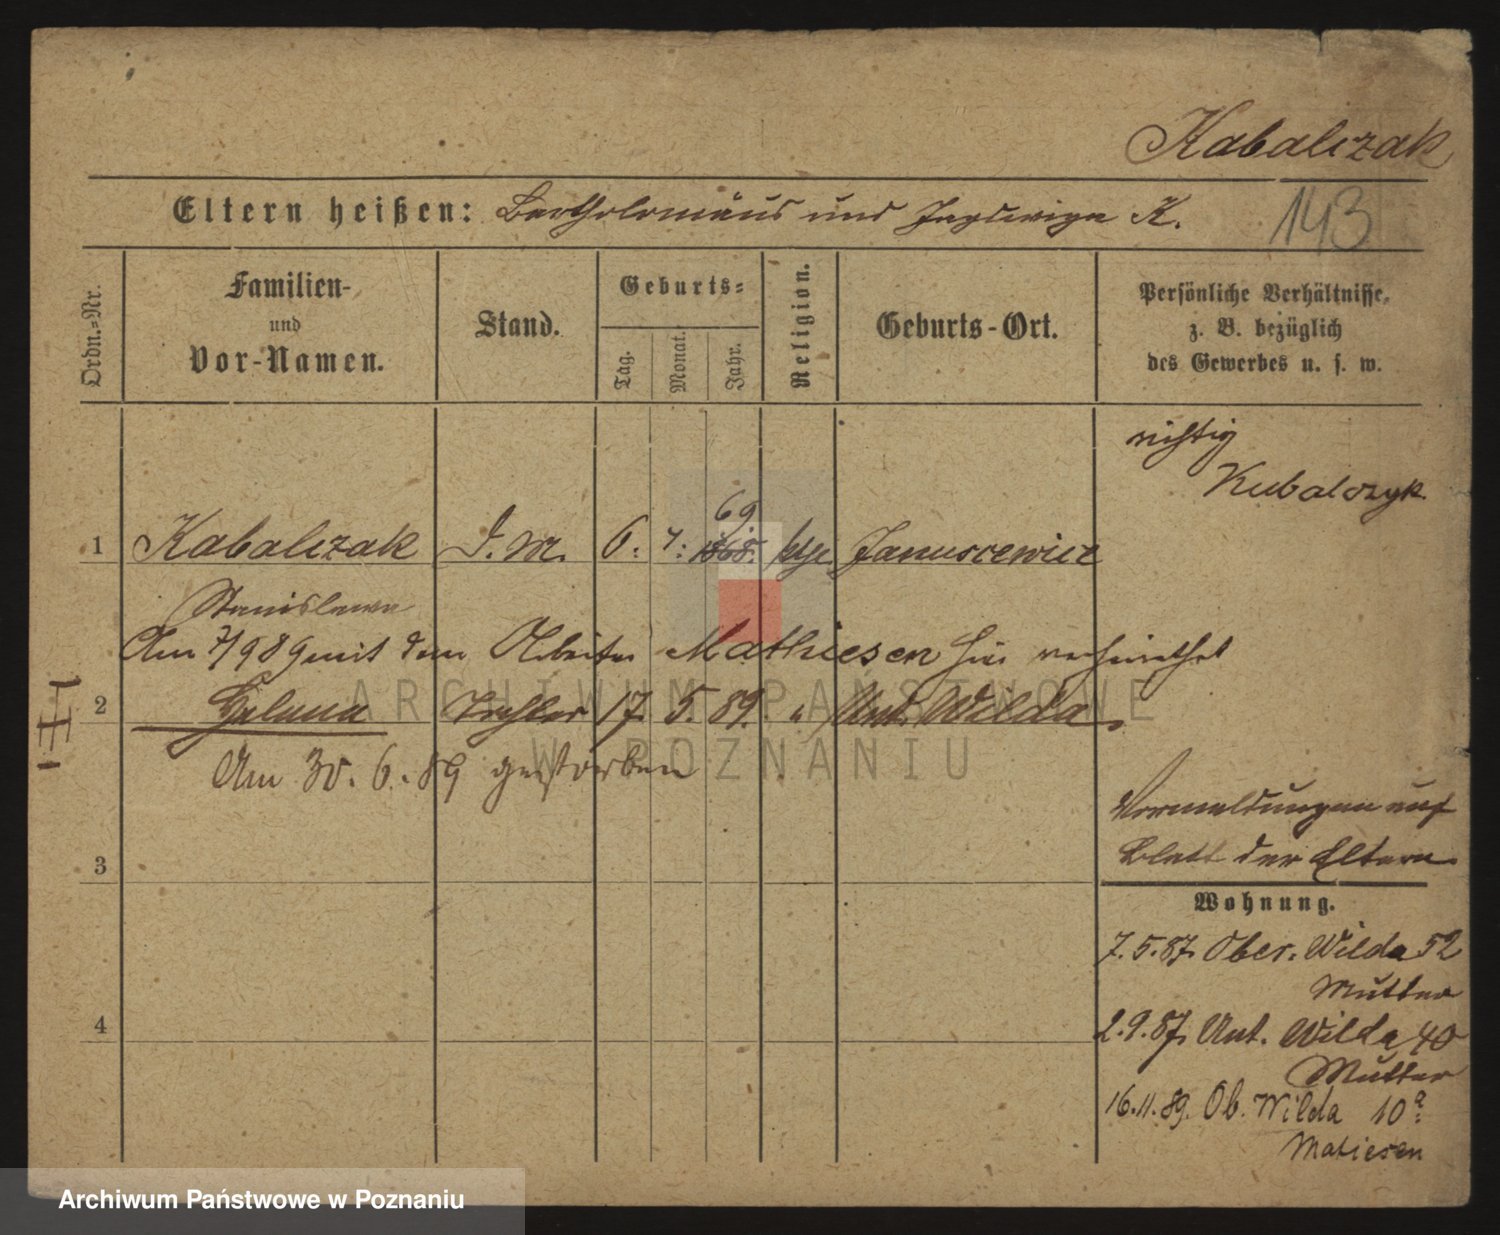 Kabalczak
Eltern heißen: Bartholomäus und Hedwiga K.
143
Ordn.-Nr.
Familien-
und
Vor-Namen.
Stand.
Geburts-
Tag.
Monat.
Jahr.
Religion.
Geburts-Ort.
Persönliche Verhältnisse,
z. B. bezüglich
des Gewerbes u. s. w.
richtig
Kubalczyk
69
1 Kabalczak D. M. 6. 7. 1868. ktl Januscewicz
Stanislawa
Am 7/9 89 mit dem Arbeiter Mathiesen hier verheirathet
III
2 Helena Tochter 17. 5. 89. " Unt. Wilda
ARCHIWUM PAŃSTWOWE
W POZNANIU
Am 30. 6. 89 gestorben
Vormeldungen auf
Blatt der Eltern
3
Wohnung.
7.5.87. Ober. Wilda 52
Mutter
4
2.9.87. Unt. Wilda 40
Mutter
16.11.89. Ob. Wilda 10a
Matiesen
Archiwum Państwowe w Poznaniu